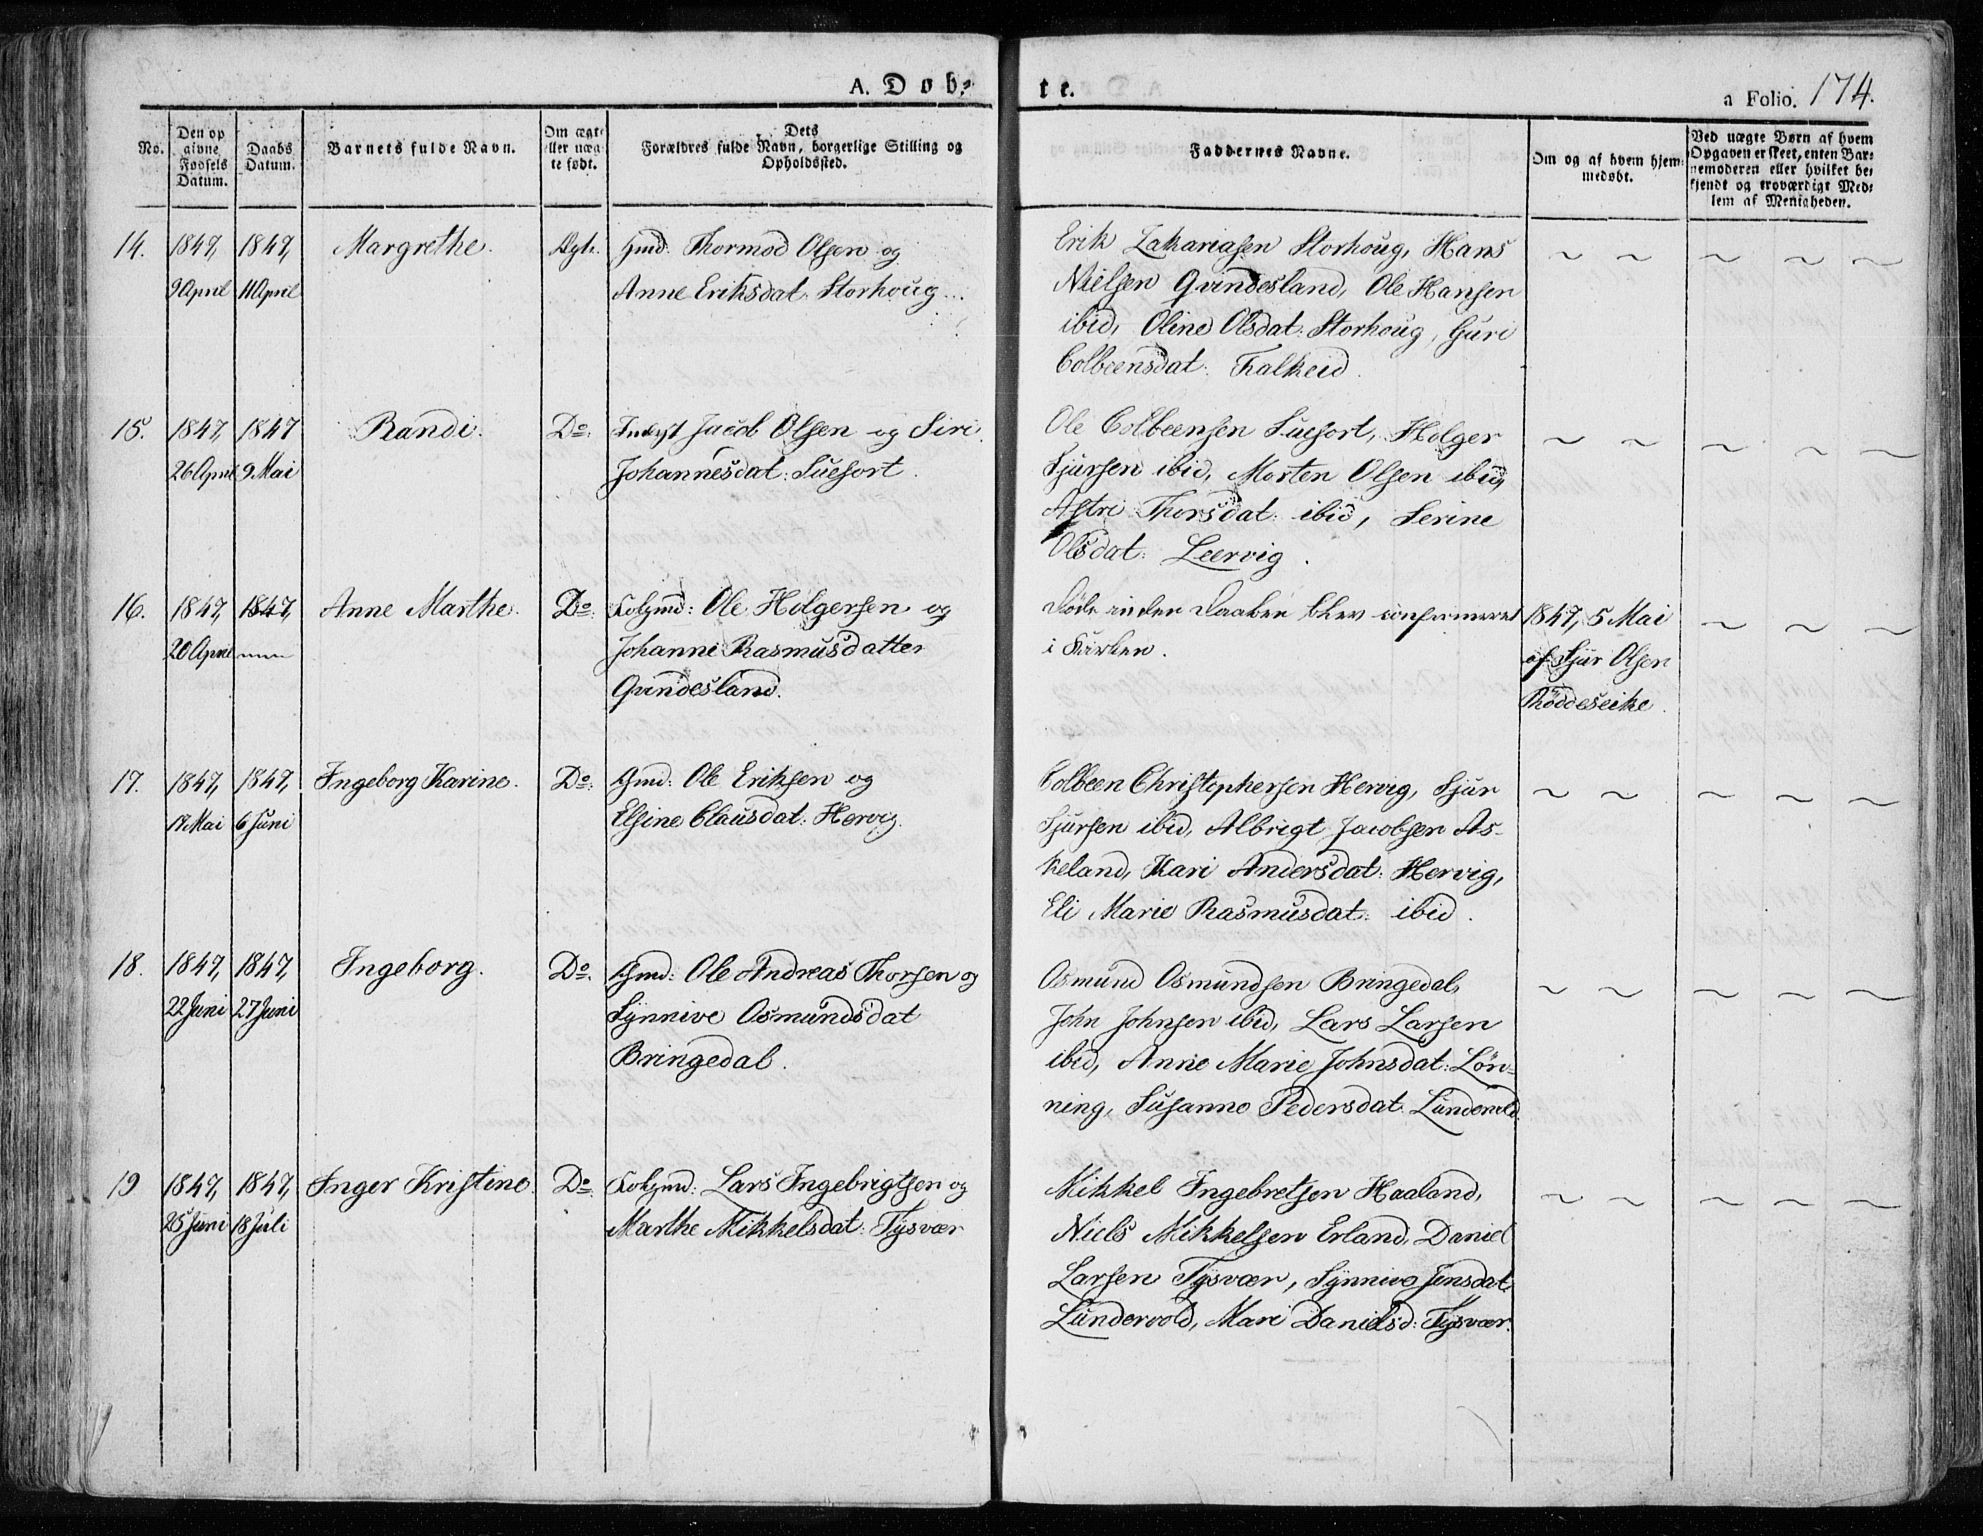 A. Døb-
te.
a Folio. 174.
No.
Den opgivne Fødsels Datum.
Daabs Datum.
Barnets fulde Navn.
Om ægte eller uægte født.
Dets Forældres fulde Navn, borgerlige Stilling og Opholdssted.
Faddernes Navne.
Om og af hvem hjemmedøbt.
Ved uægte Børn af hvem Opgaven er skeet, enten Barnemoderen eller hvilket bekjendt og troværdigt Medlem af Menigheden.
14. 1847, 1847, Margrethe. Ægte. Gmd: Thormod Olsen og
9 April 11 April Anne Eriksdat: Storhoug.
Erik Zakariasen Storhoug, Hans
Nielsen Qvindesland, Ole Hansen
ibid, Oline Olsdat: Storhoug, Guri
Colbeensdat: Falkeid.
15. 1847, 1847 Randi. Do: Inderst Jacob Olsen og Siri
26 April 9 Mai Johannesdat: Suefort.
Ole Colbeensen Suefort, Holger
Sjursen ibid, Morten Olsen ibid,
Astri Thorsdat: ibid, Serine
Olsdat: Leervig.
16. 1847, 1847, Anne Marthe. Do: Ole Holgersen og
20 April Johanne Rasmusdatter
Qvindesland.
Døde inden Daaben blev confirmeret
i Kirken.
1847, 5 Mai
af Sjur Olsen
Røddeseike.
17. 1847, 1847, Ingeborg Karine. Do: Gmd: Ole Eriksen og
17 Mai 6 Juni Elsine Clausdat: Hervig.
Colbeen Christophersen Hervig, Sjur
Sjursen ibid, Albrigt Jacobsen As-
keland, Kari Andersdat: Hervig,
Eli Marie Rasmusdat: ibid.
18. 1847, 1847, Ingeborg. Do: Gmd: Ole Andreas Thorsen og
22 Juni 27 Juni Synnive Osmundsdat
Bringedal.
Osmund Osmundsen Bringedal,
John Johnsen ibid, Lars Larsen
ibid, Anne Marie Johnsdat: Løn-
ning, Susanne Pedersdat. Lundevold.
19 1847, 1847, Inger Kristine. Do: Lars Ingebrigtsen og
25 Juni 18 Juli Marthe Mikkelsdat: Tysvær
Mikkel Ingebretsen Haaland,
Niels Mikkelsen Erland, Daniel
Larsen Tysvær, Synnive Jensdat.
Lundervold, Mari Danielsd: Tysvær.